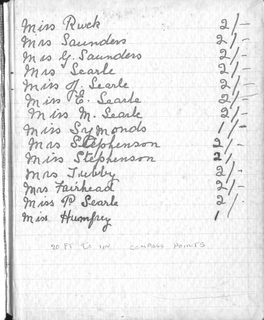 Miss Ruck 2/-
Mrs Saunders 2/-
Mrs G. Saunders 2/-
Mrs Searle 2/-
Miss J. Searle 2/-
Miss E. Searle 2/-
Miss M. Searle 2/-
Miss Symonds 1/-
Mrs Stephenson 2/-
Miss Stephenson 2/-
Mrs Tubby 2/-
Mrs Fairhead 2/-
Miss P Searle 2/-
Miss Humfrey 1/-
20 FT COMPASS POINTS